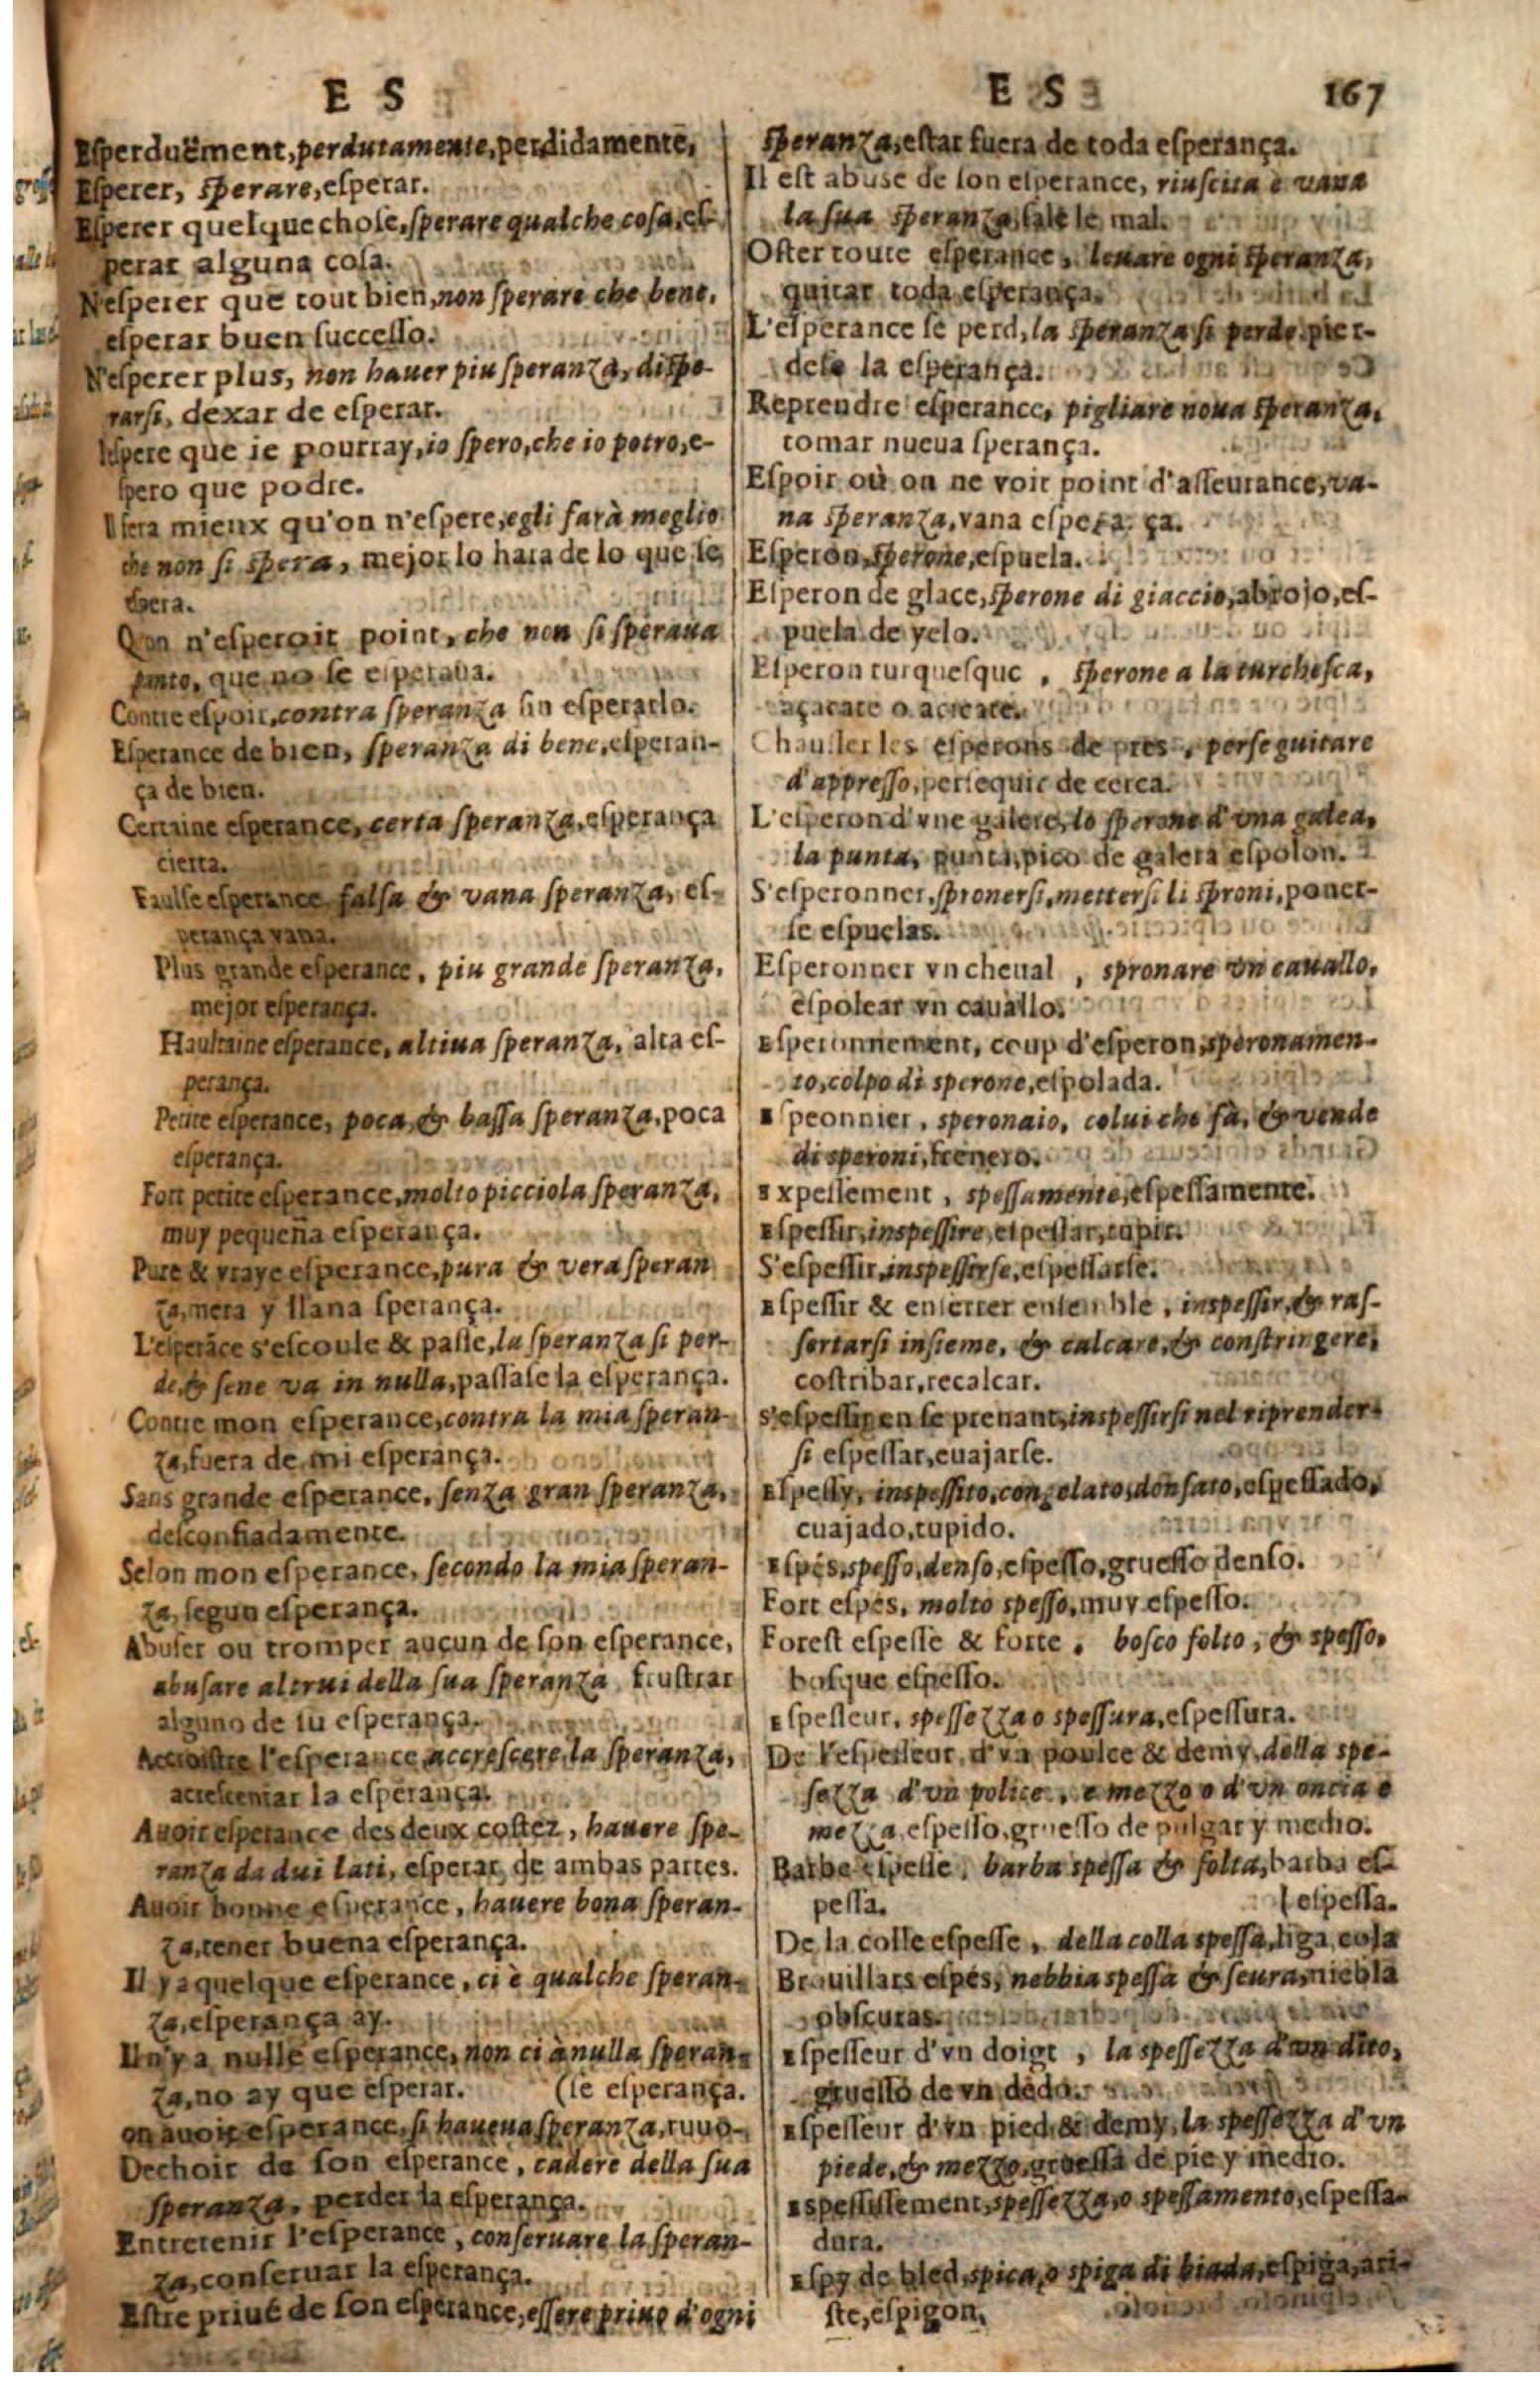 E S
Esperduëment, perdutamente, perdidamente,
Esperer, sperare, esperar.
Esperer quelque chose, sperare qualche cosa, es-
perar alguna cosa.
N'esperer que tout bien, non sperare che bene,
esperar buen successo.
N'esperer plus, non hauer piu speranza, dispe-
rarsi, dexar de esperar.
I'espere que ie pourray, io spero, che io potro, e-
spero que podre.
Il fera mieux qu'on n'espere, egli farà meglio
che non si spera, mejor lo hara de lo que se
espera.
Qu'on n'esperoit point, che non si speraua
punto, que no se esperaua.
Contre espoir, contra speranza sin esperarlo.
Esperance de bien, speranza di bene, esperan-
ça de bien.
Certaine esperance, certa speranza, esperança
cierta.
Faulse esperance, falsa & vana speranza, es-
perança vana.
Plus grande esperance, piu grande speranza,
mejor esperança.
Haultaine esperance, altiua speranza, alta es-
perança.
Petite esperance, poca, & bassa speranza, poca
esperança.
Fort petite esperance, molto picciola speranza,
muy pequeña esperança.
Pure & vraye esperance, pura & vera speran
za, mera y llana sperança.
L'esperãce s'escoule & passe, la speranza si per-
de, & sene va in nulla, passase la esperança.
Contre mon esperance, contra la mia speran-
za, fuera de mi esperança.
Sans grande esperance, senza gran speranza,
desconfiadamente.
Selon mon esperance, secondo la mia speran-
za, segun esperança.
Abuser ou tromper aucun de son esperance,
abusare altrui della sua speranza, frustrar
alguno de su esperança.
Accroistre l'esperance, accrescere la speranza,
acrescentar la esperança.
Auoir esperance des deux costez, hauere spe-
ranza da dui lati, esperar de ambas partes.
Auoir bonne esperance, hauere bona speran-
za, tener buena esperança.
Il y a quelque esperance, ci è qualche speran-
za, esperança ay.
Il n'y a nulle esperance, non ci à nulla speran-
za, no ay que esperar. (se esperança.
on auoit esperance, si haueua speranza, tuuo-
Dechoir de son esperance, cadere della sua
speranza, perder la esperança.
Entretenir l'esperance, conseruare la speran-
za, conseruar la esperança.
Estre priué de son esperance, essere priuo d'ogni
E S 167
speranza, estar fuera de toda esperança.
Il est abuse de son esperance, riuscita è vana
la sua speranza, sale le mal.
Oster toute esperance, leuare ogni speranza,
quitar toda esperança.
L'esperance se perd, la speranza si perde, pier-
dese la esperança.
Reprendre esperance, pigliare noua speranza,
tomar nueua sperança.
Espoir où on ne voit point d'asseurance, va-
na speranza, vana espera ça.
Esperon, sperone, espuela.
Esperon de glace, sperone di giaccio, abrojo, es-
puela de yelo.
Esperon turquesque, sperone a la turchesca,
açacate o acicate.
Chausser les esperons de pres, perseguitare
d'appresso, persequir de cerca.
L'esperon d'vne galere, lo sperone d'vna galea,
la punta, punta, pico de galera espolon.
S'esperonner, spronersi, mettersi li sproni, poner-
se espuelas.
Esperonner vn cheual, spronare vn cauallo,
espolear vn cauallo.
Esperonnement, coup d'esperon, speronamen-
to, colpo di sperone, espolada.
Espeonnier, speronaio, colui che fà, & vende
di speroni, frenero.
Expessement, spessamente, espessamente.
Espessir, inspessire, espessar, tupir.
S'espessir, inspessirse, espessarse.
Espessir & enserrer ensemble, inspessir, & ras-
sertarsi insieme, & calcare, & constringere,
costribar, recalcar.
s'espessir en se prenant, inspessirsi nel riprender-
si espessar, euajarse.
Espessy, inspessito, congelato, donsato, espessado,
cuajado, tupido.
Espés, spesso, denso, espesso, gruesso denso.
Fort espés, molto spesso, muy espesso.
Forest espesse & forte, bosco folto, & spesso,
bosque espesso.
Espesseur, spessezza o spessura, espessura.
De l'espesseur d'vn poulce & demy, della spe-
sezza d'vn police, e mezzo o d'vn oncia e
mezza, espesso, gruesso de pulgar y medio.
Barbe espesse, barba spessa & folta, barba es-
pessa. (espessa.
De la colle espesse, della colla spessa, liga, cola
Brouillars espés, nebbia spessa & scura, niebla
obscuras.
Espesseur d'vn doigt, la spessezza d'vn dito,
gruesso de vn dedo.
Espesseur d'vn pied & demy, la spessezza d'vn
piede, & mezzo, gruessa de pie y medio.
Espessissement, spessezza, o spessamento, espessa-
dura.
Espy de bled, spica, o spiga di biada, espiga, ari-
ste, espigon,